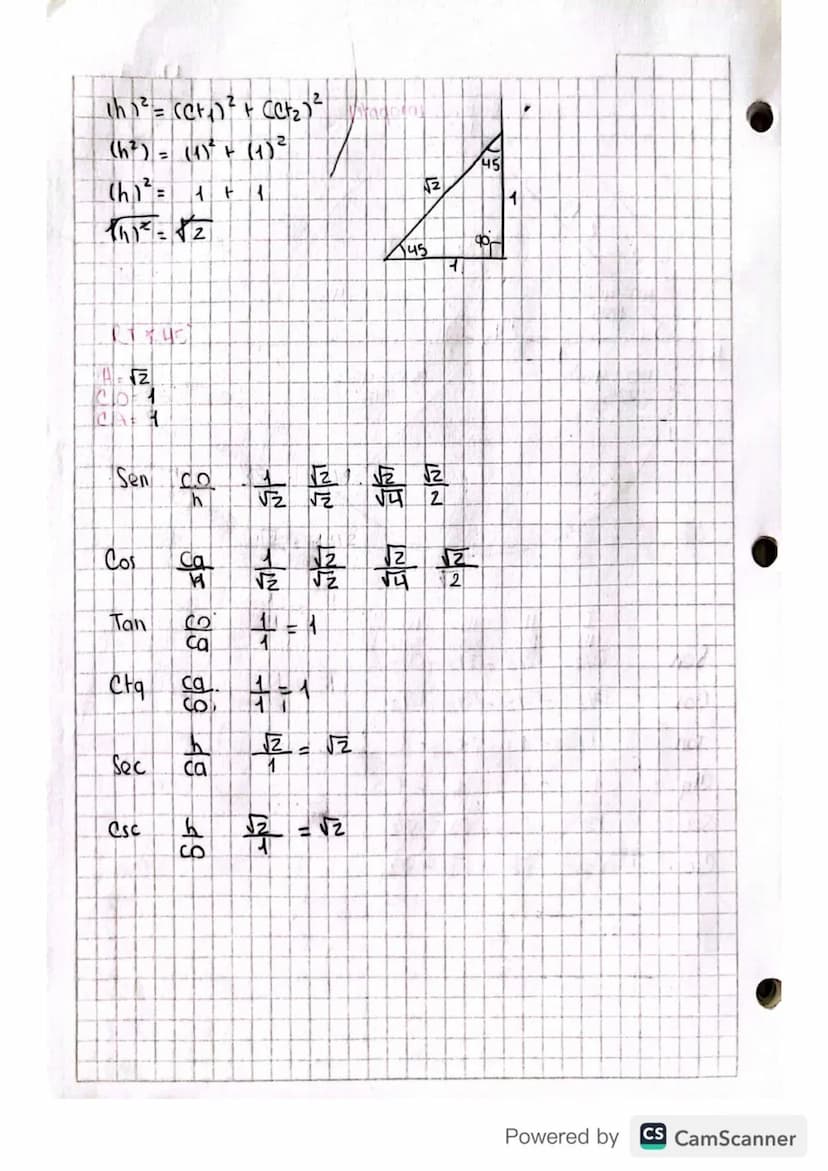 (h)² = (Ct₁)² + (Ct₂)² Pitagoras
(h²) = (1)² + (1)²
(h)² = 1 + 1
√(h)² = √2
45
√2
1
45
90°
1
H = √2
C.O = 1
CA = 1
Sen co/h 1/√2 √2/√2 √2/√4 √2/2
Cos ca/H 1/√2 √2/√2 √2/√4 √2/2
Tan co/ca 1/1 = 1
Ctg ca/co 1/1 = 1
Sec h/ca √2/1 = √2
Csc h/co √2/1 = √2
Powered by CS CamScanner